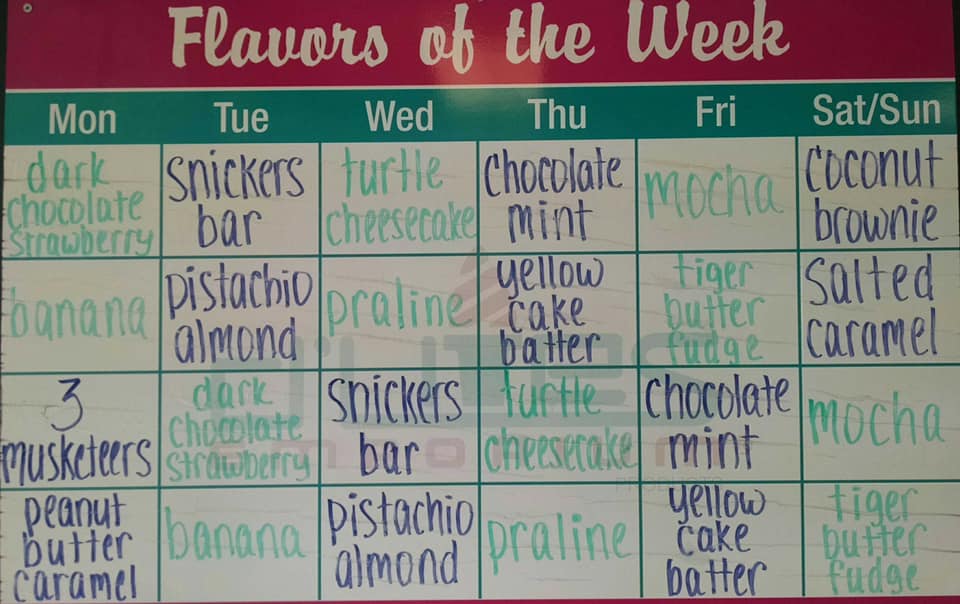 Flavors of the Week
Mon Tue Wed Thu Fri Sat/Sun
dark
chocolate
strawberry
snickers
bar
turtle
cheesecake
chocolate
mint
mocha
coconut
brownie
banana
pistachio
almond
praline
yellow
cake
batter
tiger
butter
fudge
Salted
caramel
3
musketeers
dark
chocolate
strawberry
snickers
bar
turtle
cheesecake
chocolate
mint
mocha
peanut
butter
caramel
banana
pistachio
almond
praline
yellow
cake
batter
tiger
butter
fudge
PRODUCTS